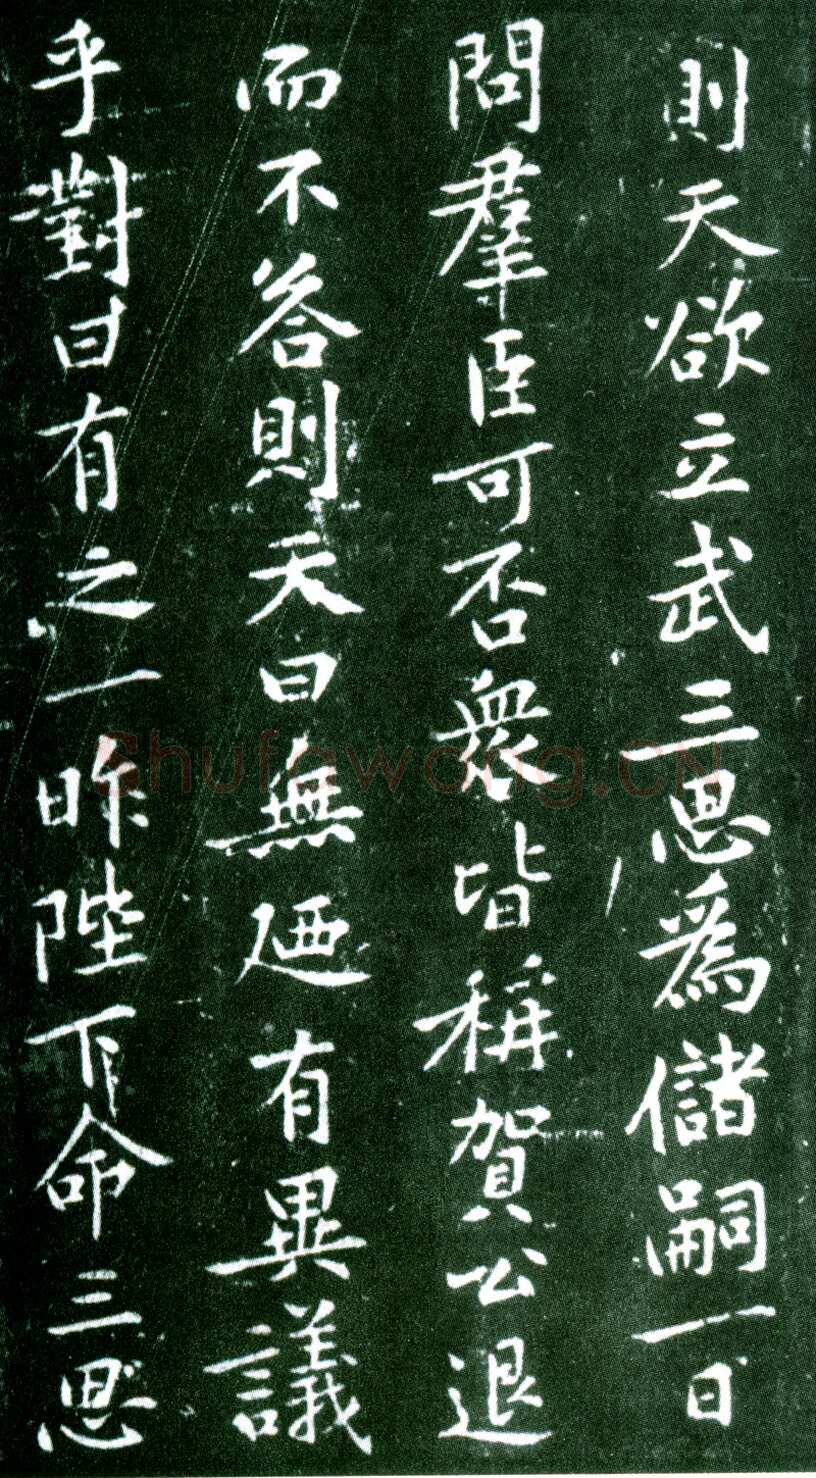 則天欲立武三思爲儲嗣一日
問羣臣可否衆皆稱賀公退
而不答則天曰無廼有異議
乎對曰有之一昨陛下命三思
Shufawong.CN